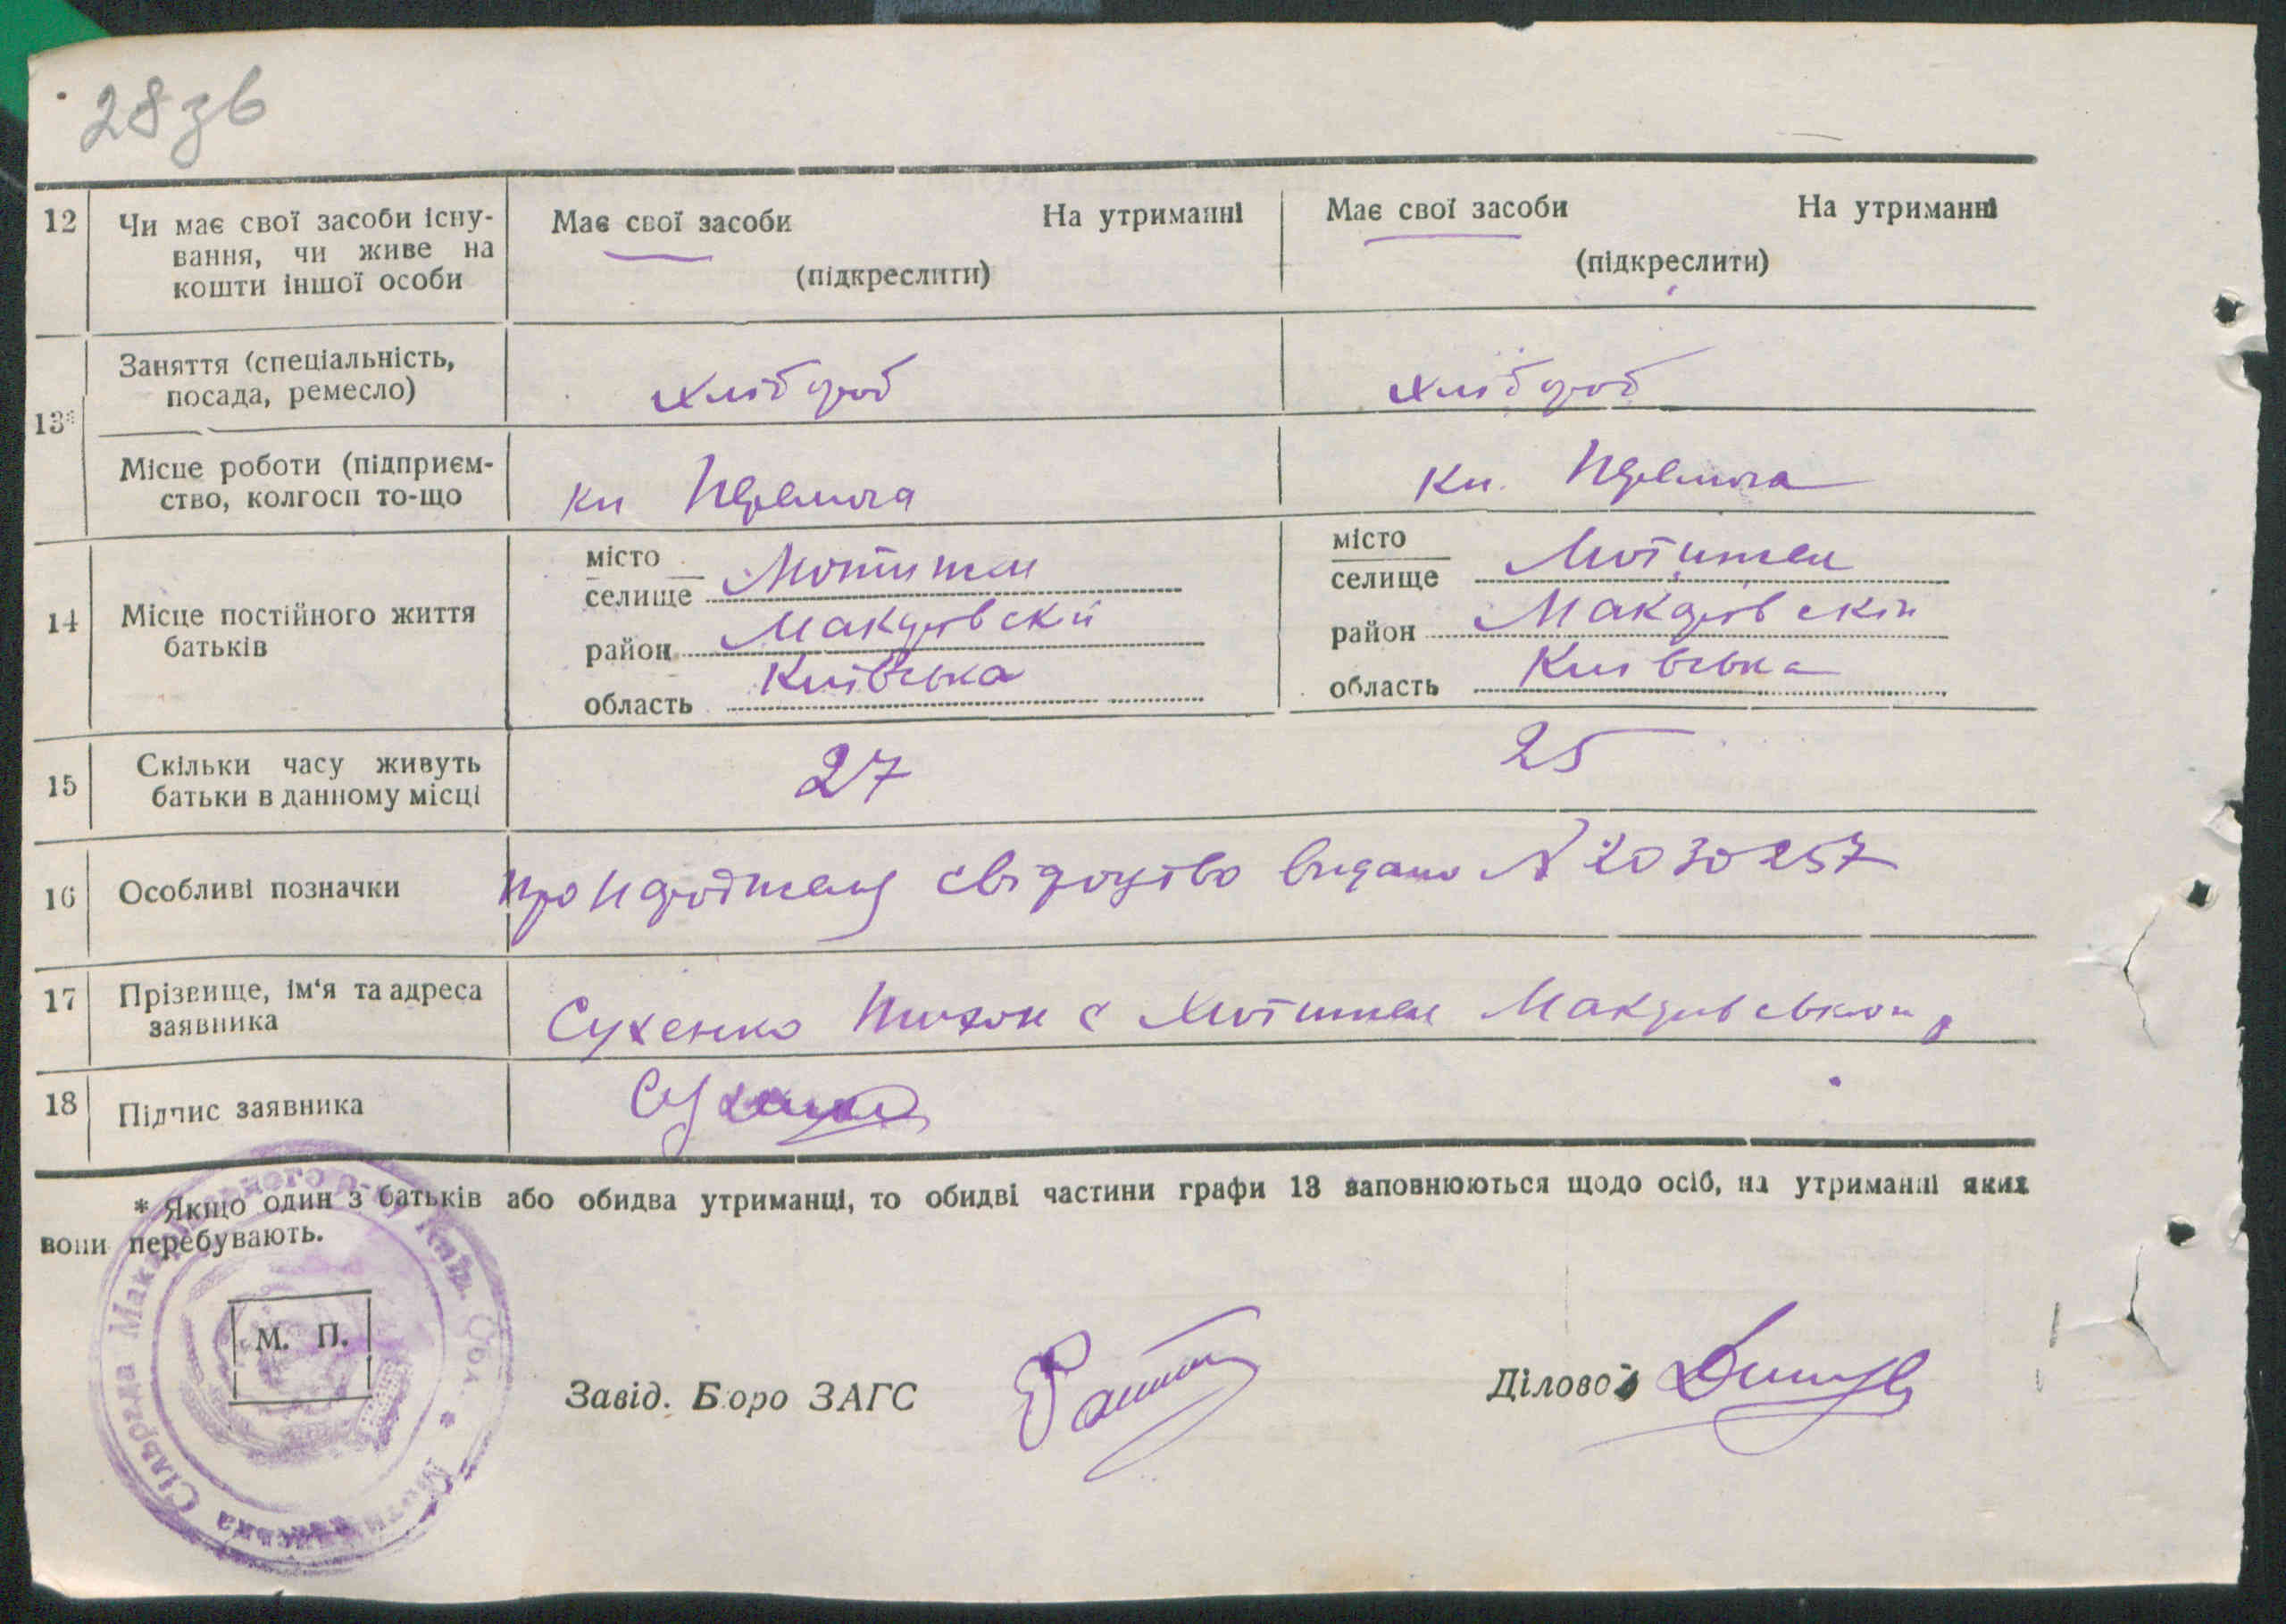 28зв
12 Чи має свої засоби існу- Має свої засоби На утриманні Має свої засоби На утриманні
вання, чи живе на (підкреслити) (підкреслити)
кошти іншої особи
13* Заняття (спеціальність, хлібороб хлібороб
посада, ремесло)
Місце роботи (підприєм- кл Перемога кл. Перемога
ство, колгосп то-що
14 Місце постійного життя батьків
місто селище Мотижен місто селище Мотижен
район Макарівскій район Макарівскій
область Київська область Київська
15 Скільки часу живуть 27 25
батьки в данному місці
16 Особливі позначки про народжену свідоцтво видано № 2030257
17 Прізвище, ім'я та адреса Сухенко Тихон с Мотижен Макарівського р
заявника
18 Підпис заявника
* Якщо один з батьків або обидва утриманці, то обидві частини графи 13 заповнюються щодо осіб, на утриманні яких
вони перебувають.
М. П.
Завід. Бюро ЗАГС Діловод
Сільрада Макарівського р-ну Київ. Обл. * Мотижинська